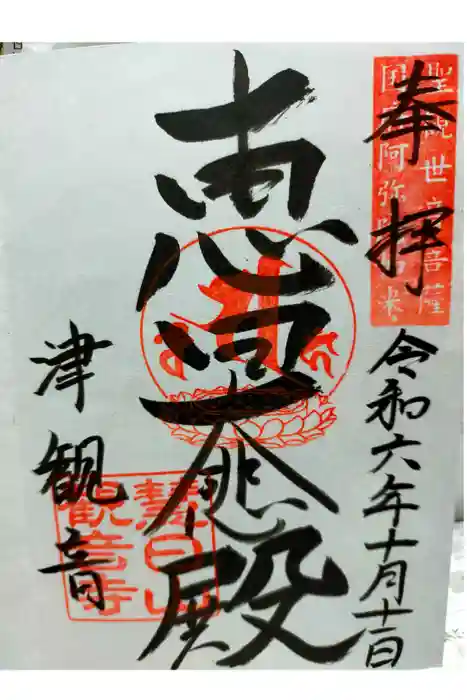 聖観世音菩薩
国府阿弥陀如来
奉拝
令和六年十月十一日
恵
大悲殿
慧日山
観音寺
津観音